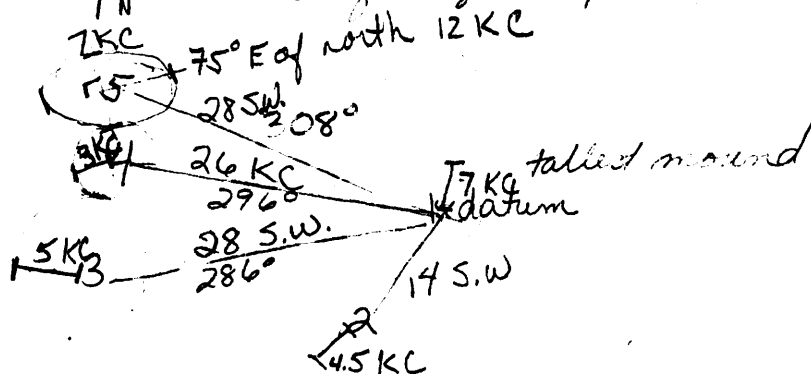 N
7KC
75° E of north 12 KC
5
28 S.W.
308°
3KC
26 KC
296°
7 KC tallest mound
datum
5 KC
3
28 S.W.
286°
14 S.W
2
4.5 KC